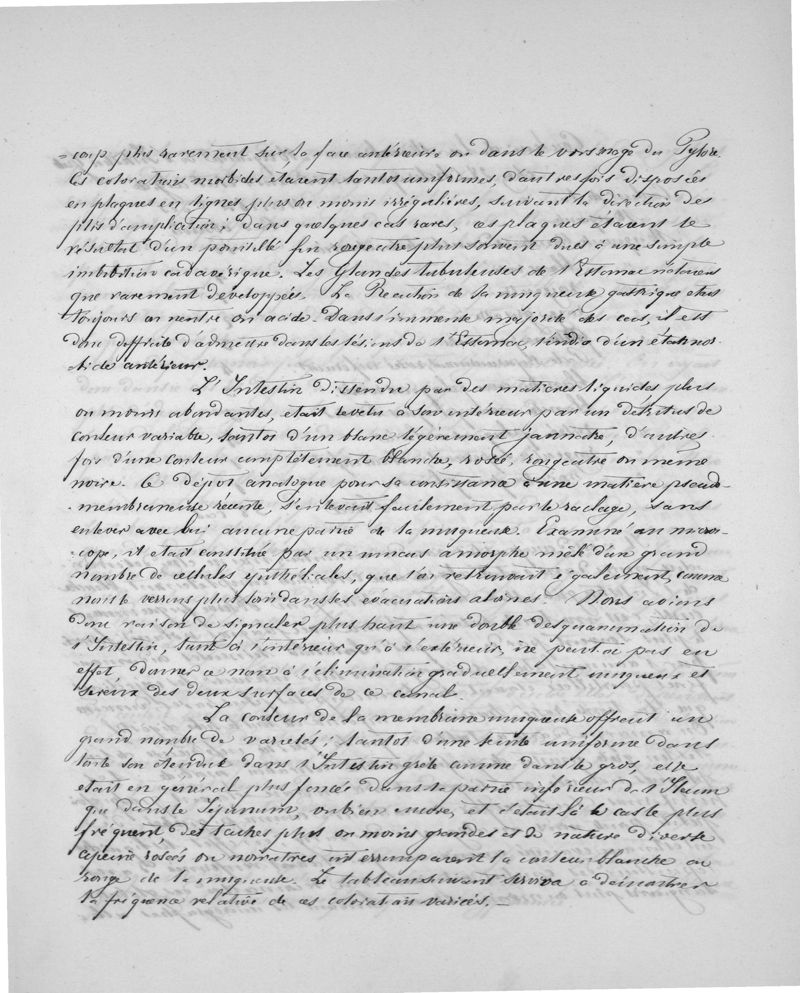 =coup plus rarement sur la face antérieure ou dans le voisinage du Pylore.
Ces colorations morbides étaient tantot uniformes, d'autres fois disposées
en plaques en lignes plus ou moins irrégulières, suivant la direction des
plis d'ampliation; dans quelques cas rares, ces plaques étaient le
résultat d'un pointillé fin rougeatre plus souvent dues à une simple
imbibition cadavérique. Les Glandes tubuleuses de l'Estomac n'étaient
que rarement développées. La Réaction de la muqueuse gastrique était
toujours ou neutre ou acide. Dans l'immense majorité des cas, il est
donc difficile d'admettre dans les lésions de l'Estomac, l'indice d'un état mor-
-bide antérieur.
L'Intestin distendu par des matières liquides plus
ou moins abondantes, était revetu à son intérieur par un détritus de
couleur variable, tantot d'un blanc légèrement jaunatre, d'autres
fois d'une couleur complètement blanche, rosée, rougeatre ou même
noire. Ce dépot analogue pour sa consistance à une matière pseudo-
-membraneuse récente, s'enlevait facilement par le raclage, sans
enlever avec lui aucune partie de la muqueuse. Examiné au micros-
cope, il était constitué par un mucus amorphe mêlé d'un grand
nombre de cellules épithéliales, que l'on retrouvait également, comme
nous le verrons plus loin dans les évacuations alvines. Nous avions
donc raison de signaler plus haut une double desquammation de
l'Intestin, tant à l'intérieur qu'à l'extérieur, ne peut-on pas en
effet, donner ce nom à l'élimination graduellement muqueux et
séreux des deux surfaces de ce canal.
La couleur de la membrane muqueuse offrait un
grand nombre de variétés; tantot d'une teinte uniforme dans
toute son étendue dans l'Intestin grêle comme dans le gros, elle
était en général plus foncée dans la partie inférieure de l'Iléum
que dans le Jéjunum, ou bien encore, et c'était là le cas le plus
fréquent, des taches plus ou moins grandes et de nature diverse
à peine rosées ou noiratres interrompaient la couleur blanche ou
rouge de la muqueuse. Le tableau suivant servira à démontrer
la fréquence relative de ces coloration variées. _